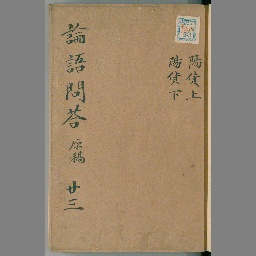 陽貨上
陽貨下
論語問答 原稿 廿三